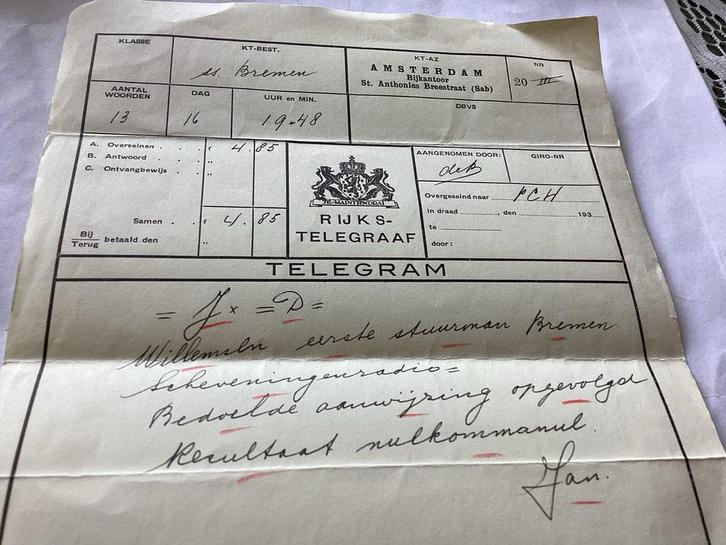 KLASSE
KT-BEST.
ss. Bremen
KT-AZ
AMSTERDAM
Bijkantoor
St. Anthonies Breestraat (Sab)
NR
20 III
AANTAL WOORDEN
13
DAG
16
UUR en MIN.
19.48
DBVS
A. Overseinen . . . . f 4.85
B. Antwoord . . . . . "
C. Ontvangbewijs . . . "
Samen . . f 4.85
Bij
Terug betaald den "
JE MAINTIENDRAI
RIJKS-
TELEGRAAF
AANGENOMEN DOOR:
deB
GIRO-NR
Overgeseind naar PCH
in draad ........, den ........ 193....
te
door:
TELEGRAM
= J x = D =
Willemsln eerste stuurman Bremen
Scheveningenradio=
Bedoelde aanwijzing opgevolgd
Resultaat nulkommanul.
Jan.